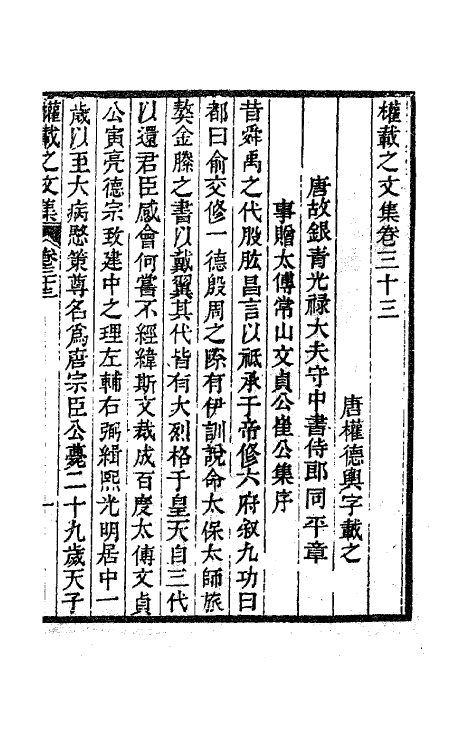 權載之文集卷三十三
唐權德輿字載之
唐故銀青光祿大夫守中書侍郎同平章
事贈太傅常山文貞公崔公集序
昔舜禹之代股肱昌言以祗承于帝修六府叙九功曰
都曰俞交修一德殷周之際有伊訓說命太保太師旅
獒金縢之書以戴翼其代皆有大烈格于皇天自三代
以還君臣感會何嘗不經緯斯文裁成百度太傅文貞
公寅亮德宗致建中之理左輔右弼緝熙光明居中一
歲以至大病愍策尊名爲唐宗臣公薨二十九歲天子
權載之文集 卷三十三 一